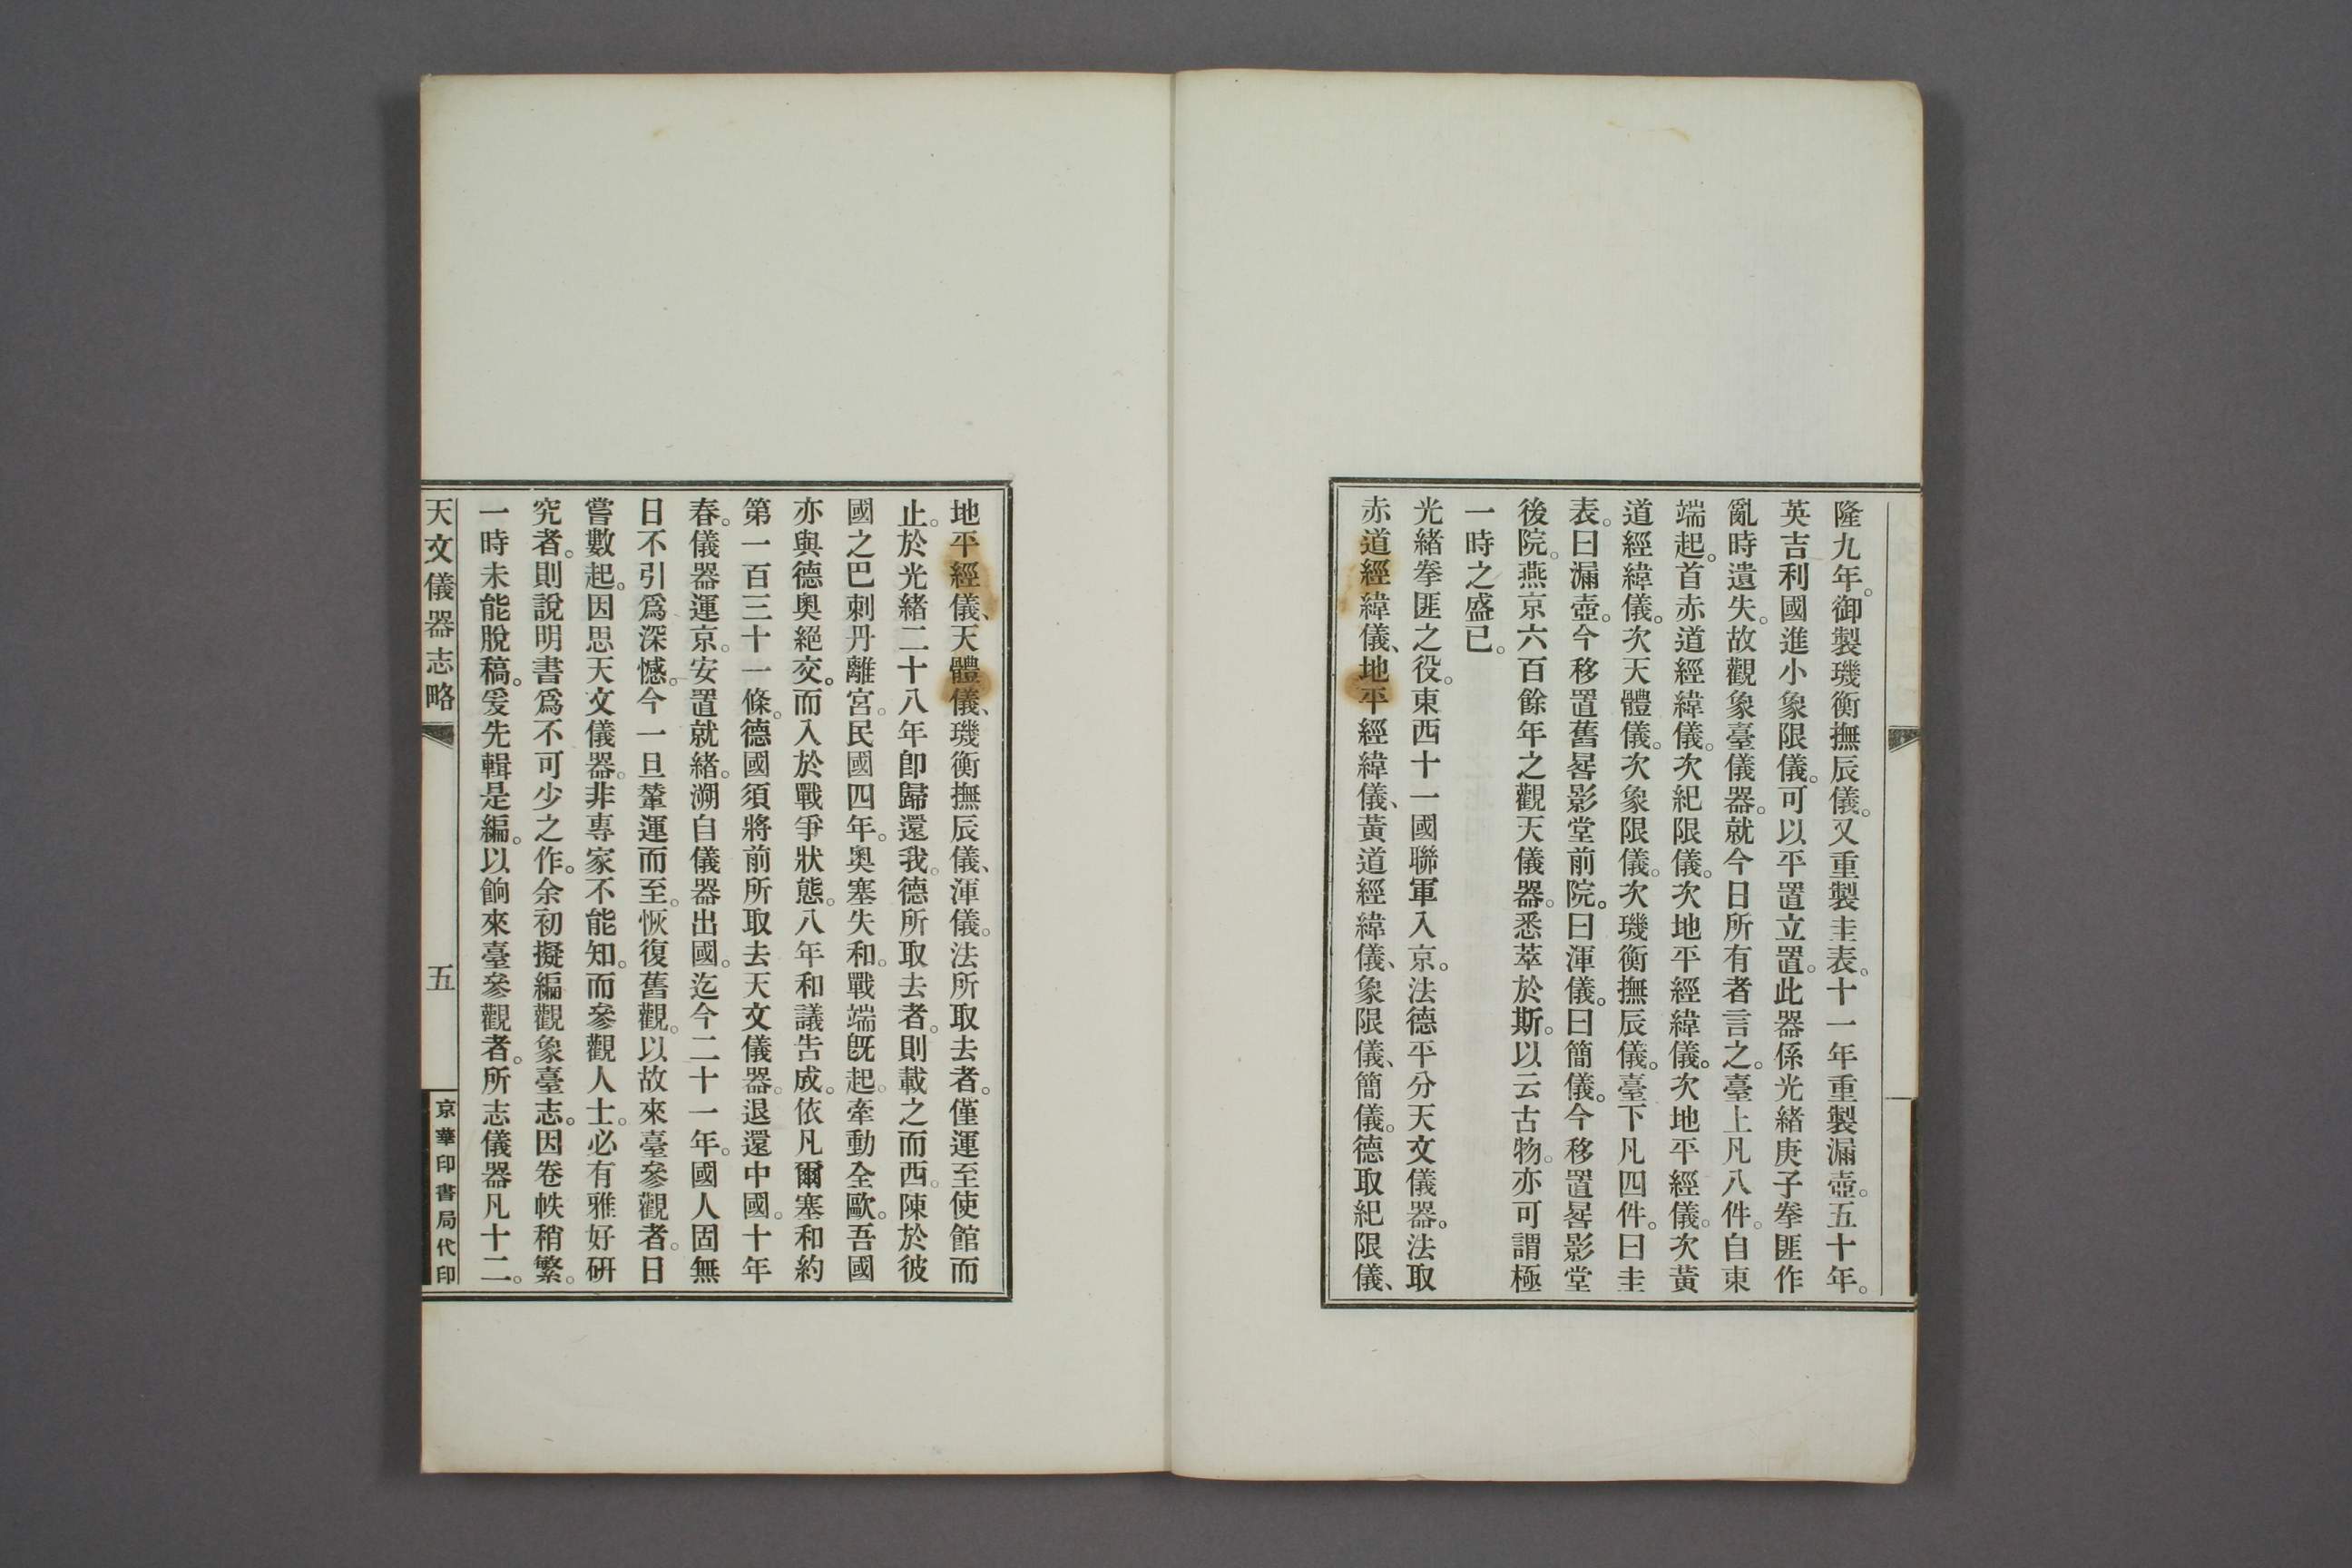 隆九年。御製璣衡撫辰儀。又重製圭表、十一年重製漏壺。五十年。
英吉利國進小象限儀。可以平置立置。此器係光緒庚子拳匪作
亂時遺失。故觀象臺儀器。就今日所有者言之。臺上凡八件。自東
端起。首赤道經緯儀。次紀限儀。次地平經緯儀。次地平經儀。次黃
道經緯儀。次天體儀。次象限儀。次璣衡撫辰儀。臺下凡四件。曰圭
表。曰漏壺。今移置舊晷影堂前院。曰渾儀。曰簡儀。今移置晷影堂
後院。燕京六百餘年之觀天儀器。悉萃於斯。以云古物。亦可謂極
一時之盛已。
光緒拳匪之役。東西十一國聯軍入京。法德平分天文儀器。法取
赤道經緯儀、地平經緯儀、黃道經緯儀、象限儀、簡儀。德取紀限儀、
地平經儀、天體儀、璣衡撫辰儀、渾儀。法所取去者。僅運至使館而
止。於光緒二十八年卽歸還我。德所取去者。則載之而西。陳於彼
國之巴刺丹離宮。民國四年。奧塞失和。戰端旣起。牽動全歐。吾國
亦與德奧絕交。而入於戰爭狀態。八年和議告成。依凡爾塞和約
第一百三十一條。德國須將前所取去天文儀器。退還中國。十年
春。儀器運京。安置就緒。溯自儀器出國。迄今二十一年。國人固無
日不引爲深憾。今一旦輦運而至。恢復舊觀。以故來臺參觀者。日
嘗數起。因思天文儀器。非專家不能知。而參觀人士。必有雅好研
究者。則說明書爲不可少之作。余初擬編觀象臺志。因卷帙稍繁。
一時未能脫稿。爰先輯是編。以餉來臺參觀者。所志儀器凡十二。
天文儀器志略
五
京華印書局代印